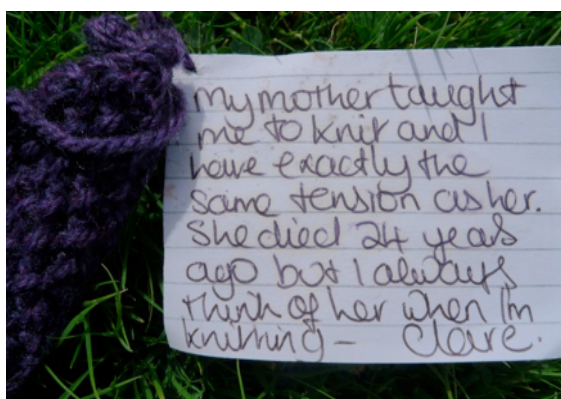 my mother taught
me to knit and I
have exactly the
same tension as her.
She died 24 years
ago but I always
think of her when I'm
knitting – Clare.